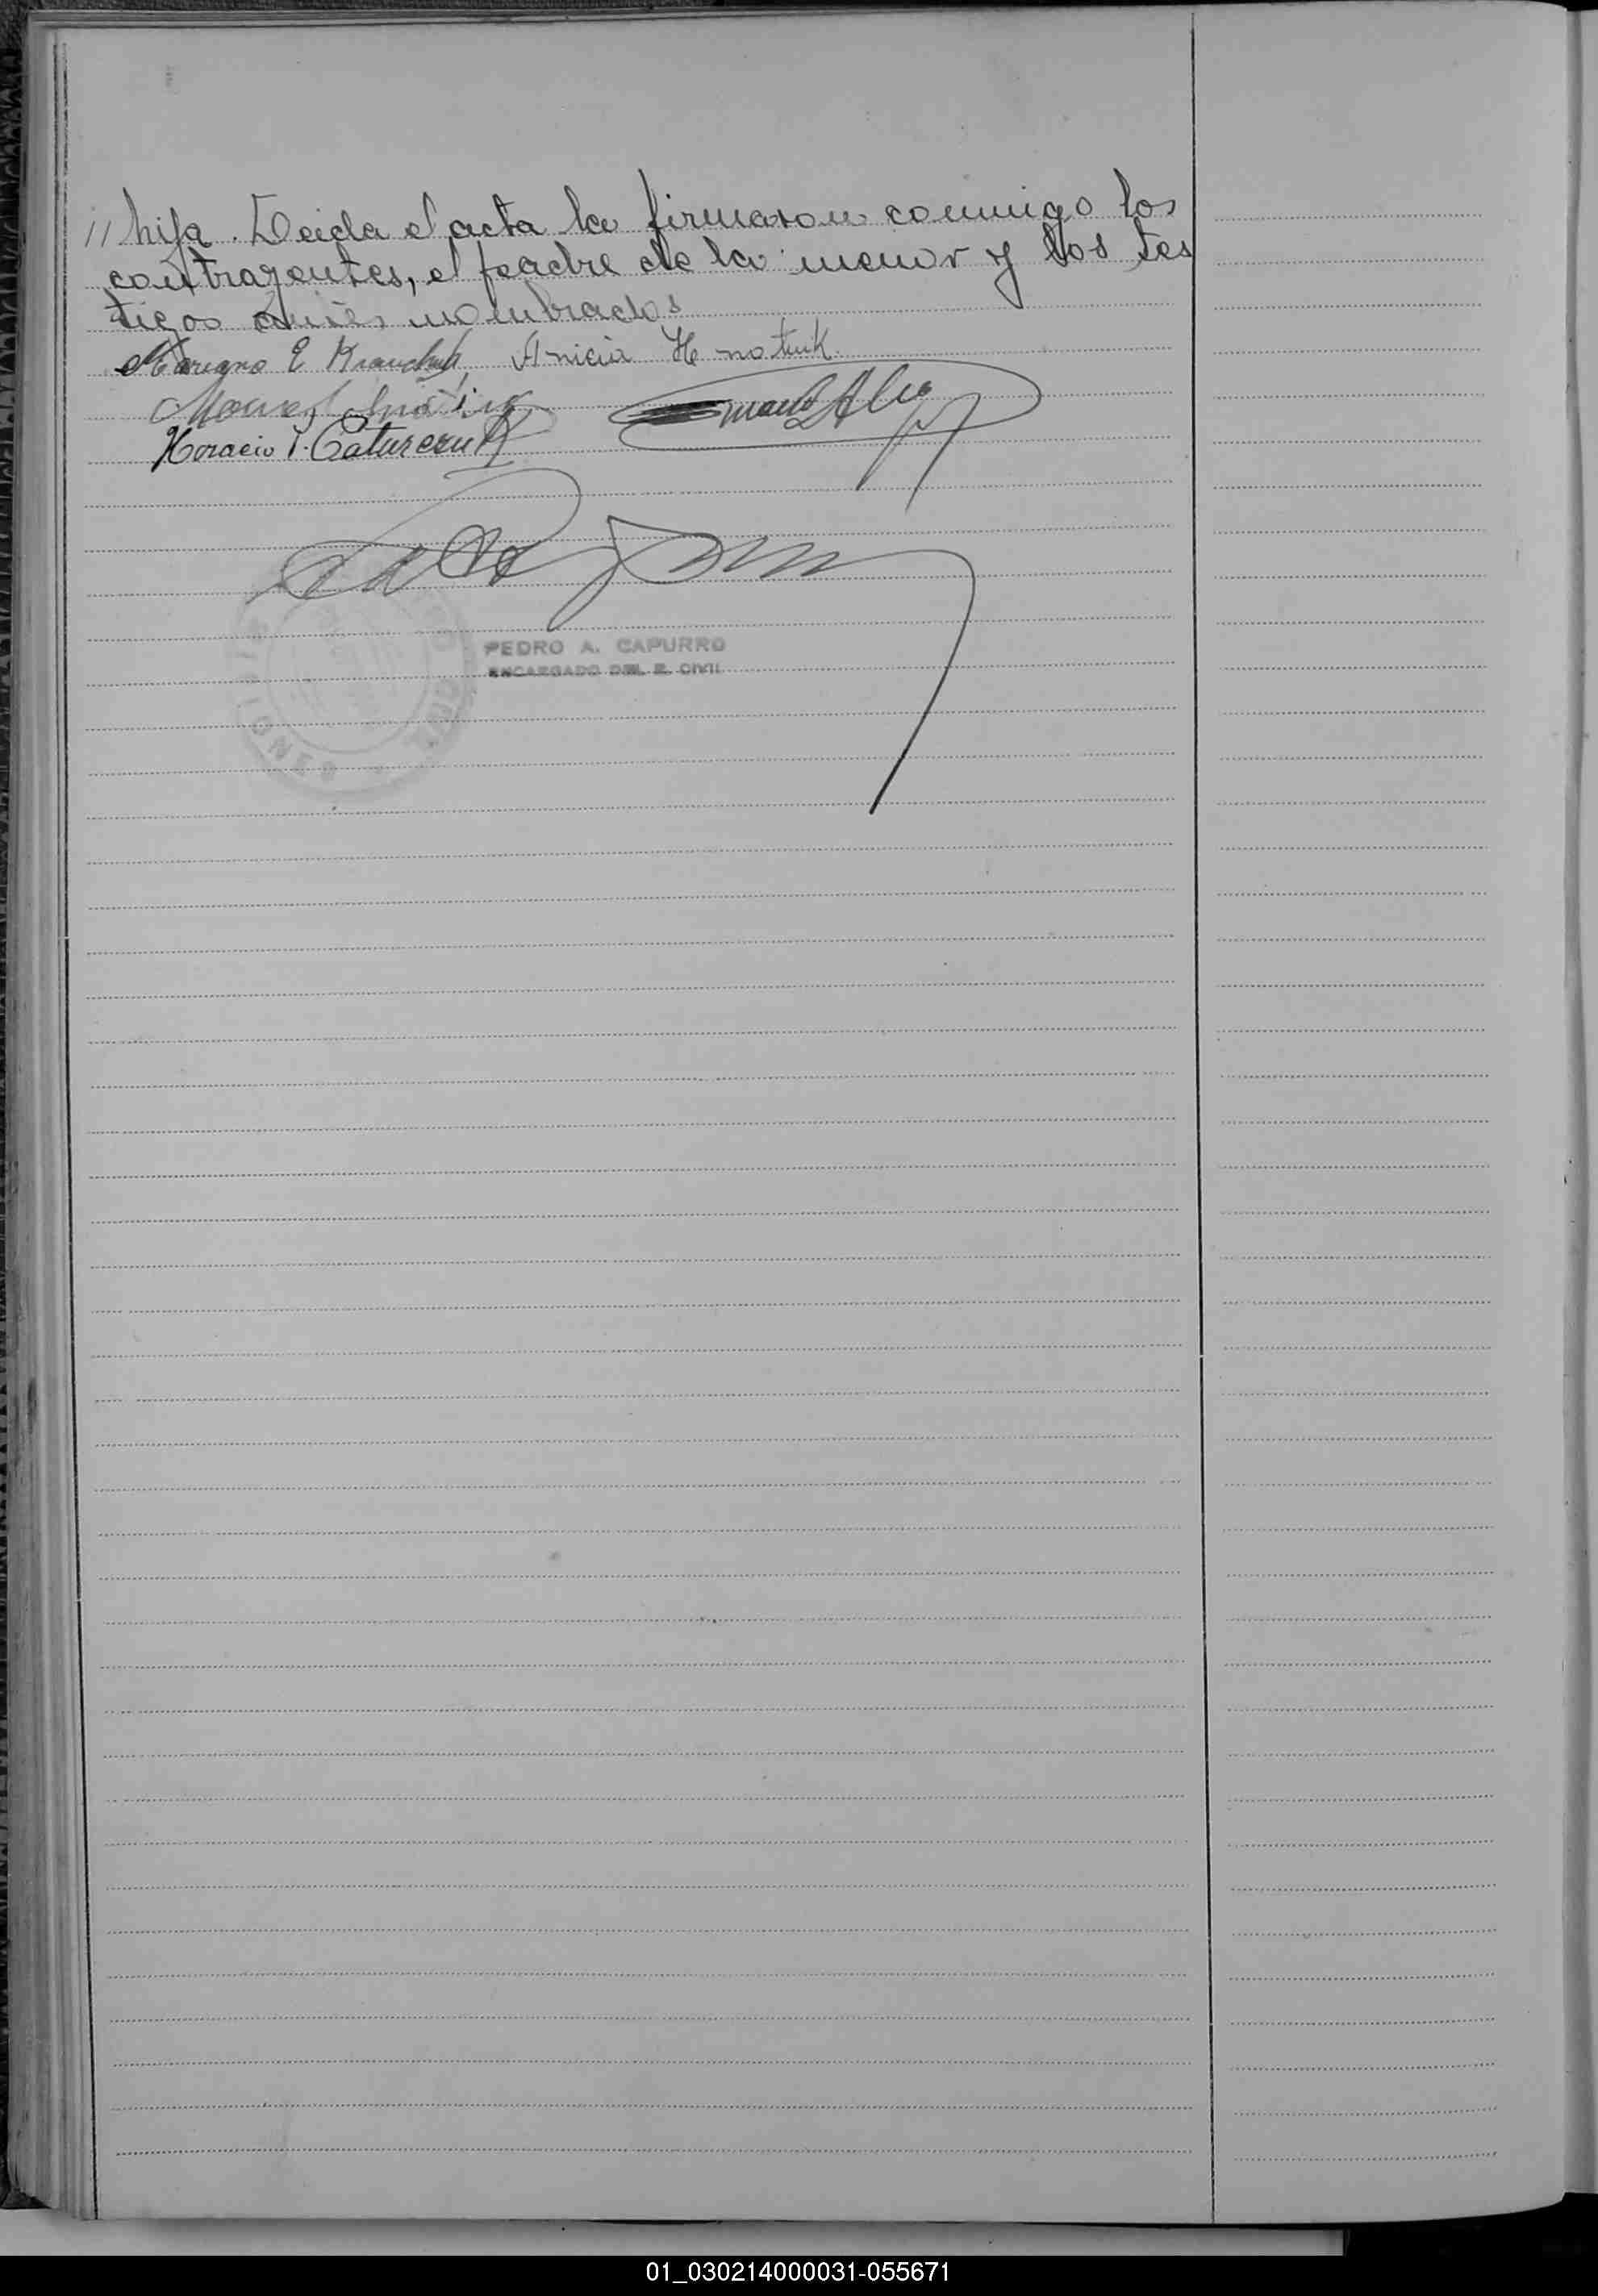 // hija. Leida el acta la firmaron conmigo los
contrayentes, el padre de la menor y los tes
tigos antes nombrados
Mariano E Kranchuk Anicia Hnatiuk
Horacio T.
PEDRO A. CAPURRO
ENCARGADO DEL R. CIVIL
MISIONES
01_030214000031-055671